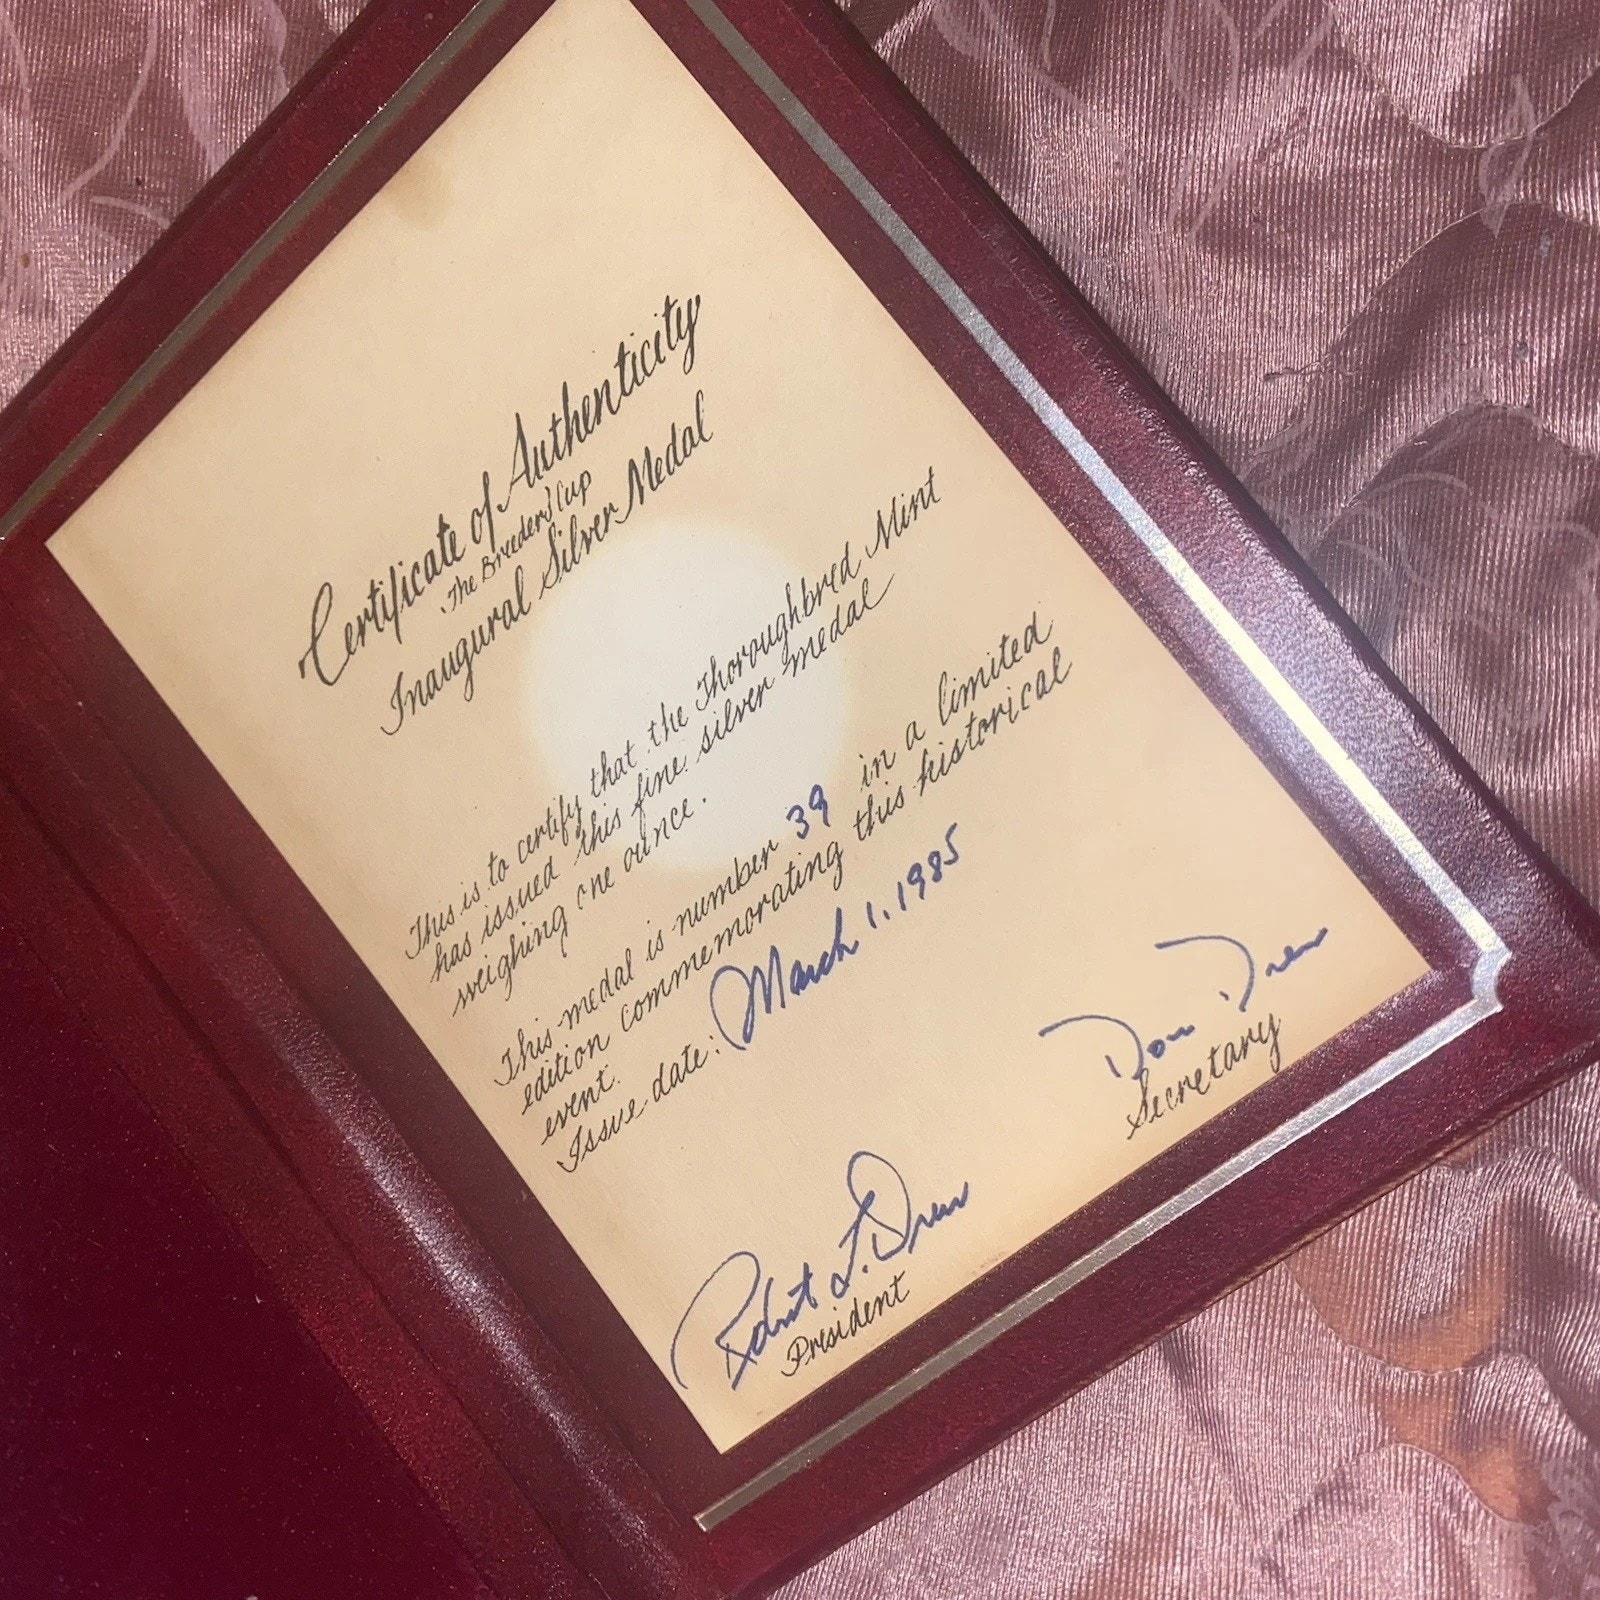 Certificate of Authenticity
The Breeders' Cup
Inaugural Silver Medal
This is to certify that the Thoroughbred Mint
has issued this fine silver medal
weighing one ounce.
This medal is number 39 in a limited
edition commemorating this historical
event.
Issue date: March 1, 1985
Don Drew
Secretary
Robert L. Drew
President